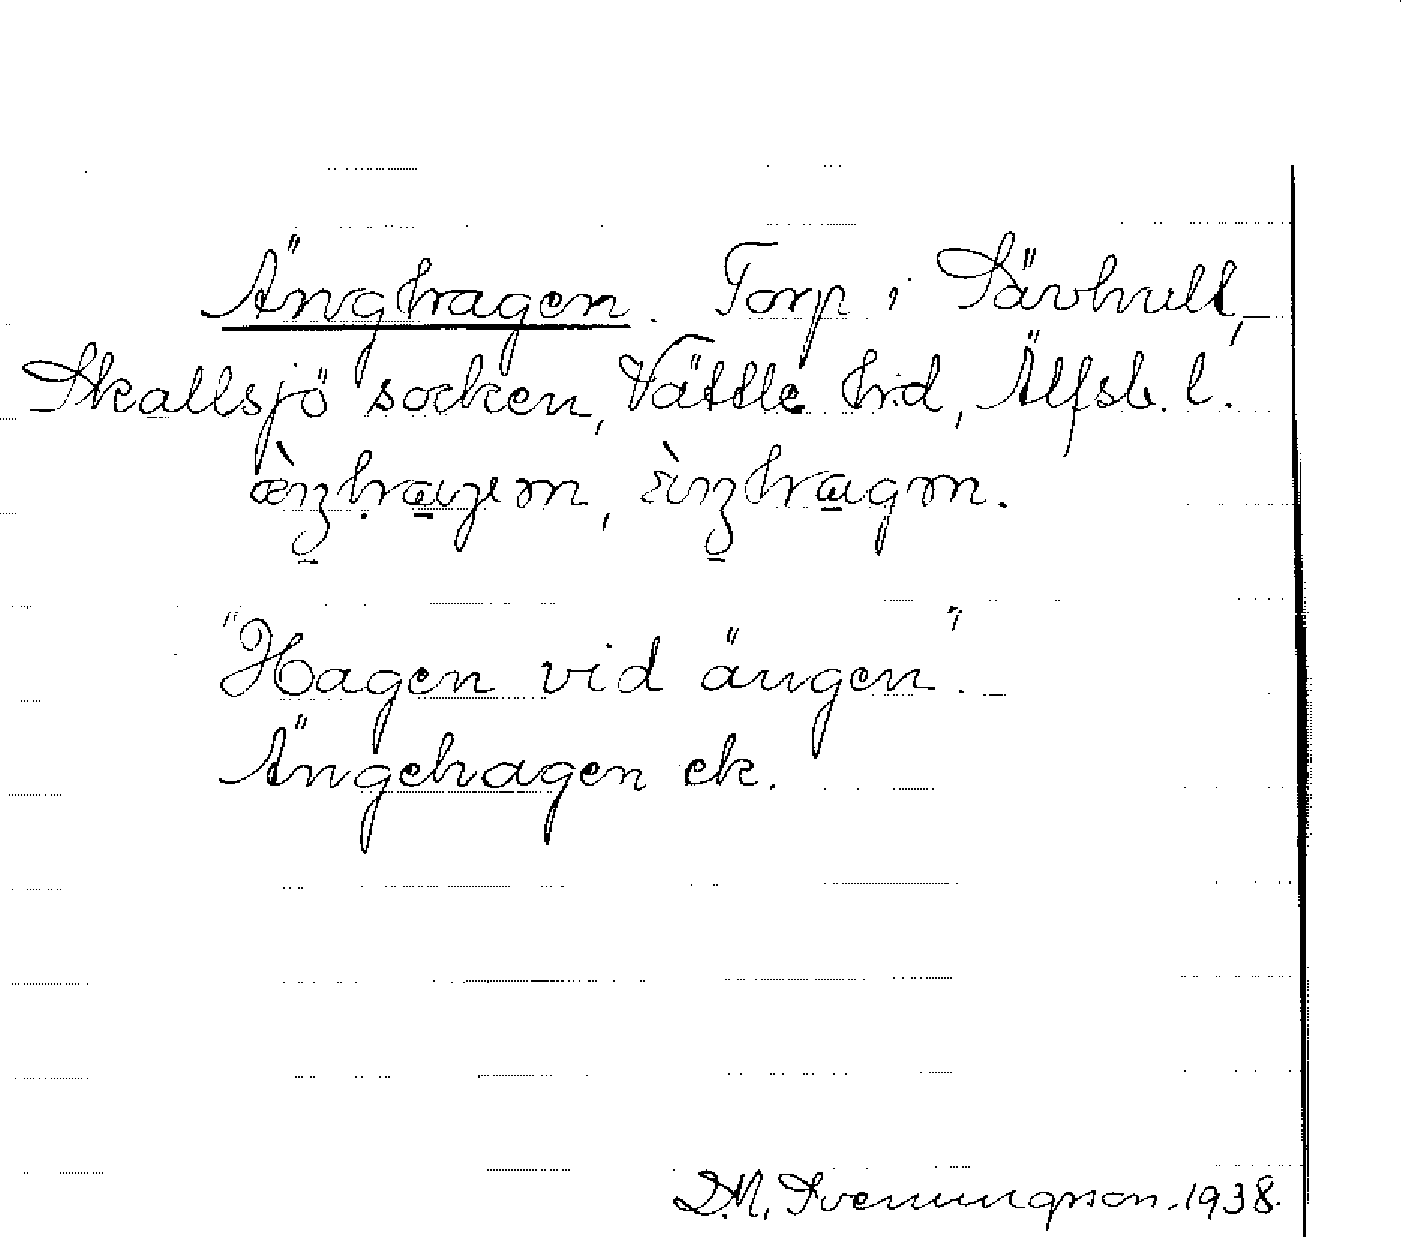 Änghagen. Torp i Sävhult,
Skallsjö socken, Vättle hd, Älfsb. l.
"Hagen vid ängen".
Ängehagen ek.
D.M. Svenungsson. 1938.